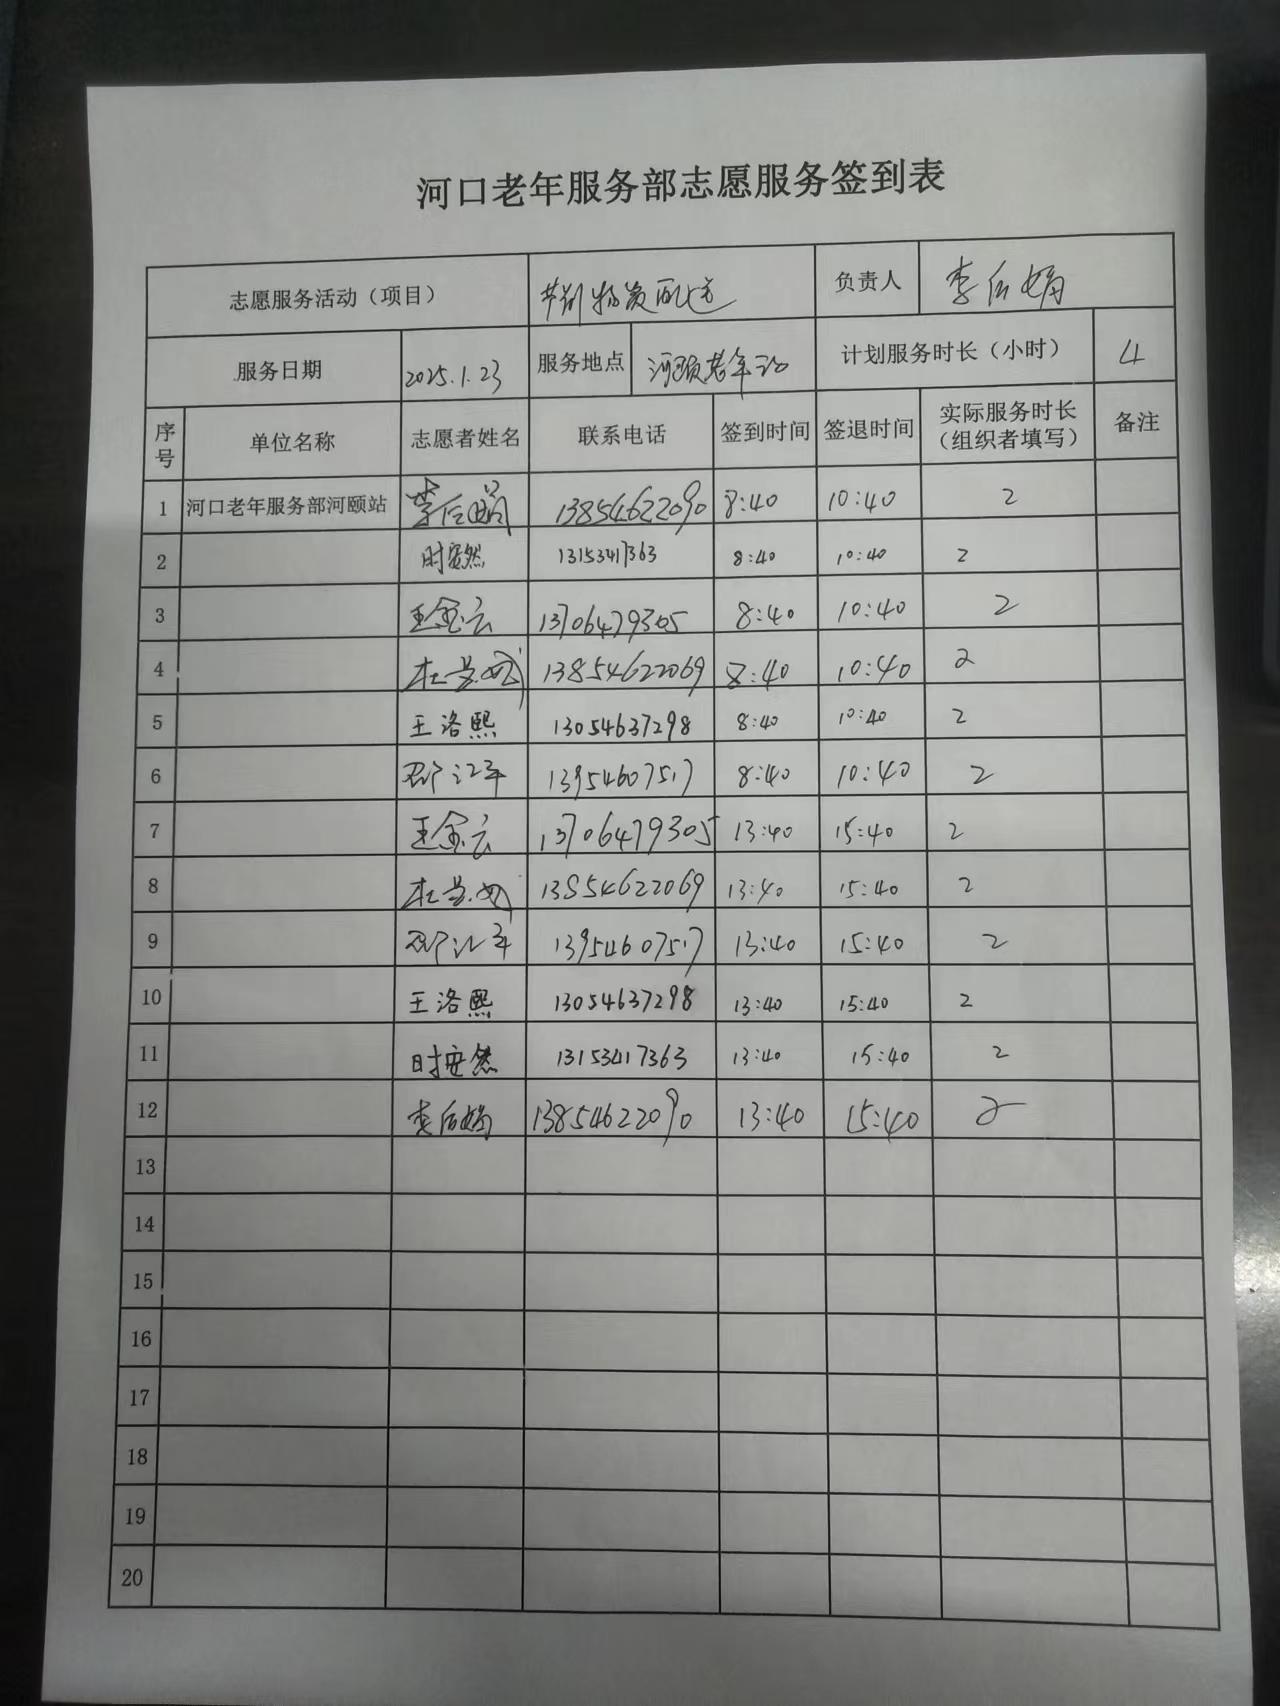 河口老年服务部志愿服务签到表
志愿服务活动（项目） 节前物资配送 负责人 李后娟
服务日期 2025.1.23 服务地点 河颐老年站 计划服务时长（小时） 4
序号 单位名称 志愿者姓名 联系电话 签到时间 签退时间 实际服务时长（组织者填写） 备注
1 河口老年服务部河颐站 李后娟 13854622090 8:40 10:40 2
2 时安然 13153417363 8:40 10:40 2
3 王金云 13706479305 8:40 10:40 2
4 杜 13854622069 8:40 10:40 2
5 王洛熙 13054637298 8:40 10:40 2
6 13954607517 8:40 10:40 2
7 王金云 13706479305 13:40 15:40 2
8 杜 13854622069 13:40 15:40 2
9 13954607517 13:40 15:40 2
10 王洛熙 13054637298 13:40 15:40 2
11 时安然 13153417363 13:40 15:40 2
12 李后娟 13854622090 13:40 15:40 2
13
14
15
16
17
18
19
20